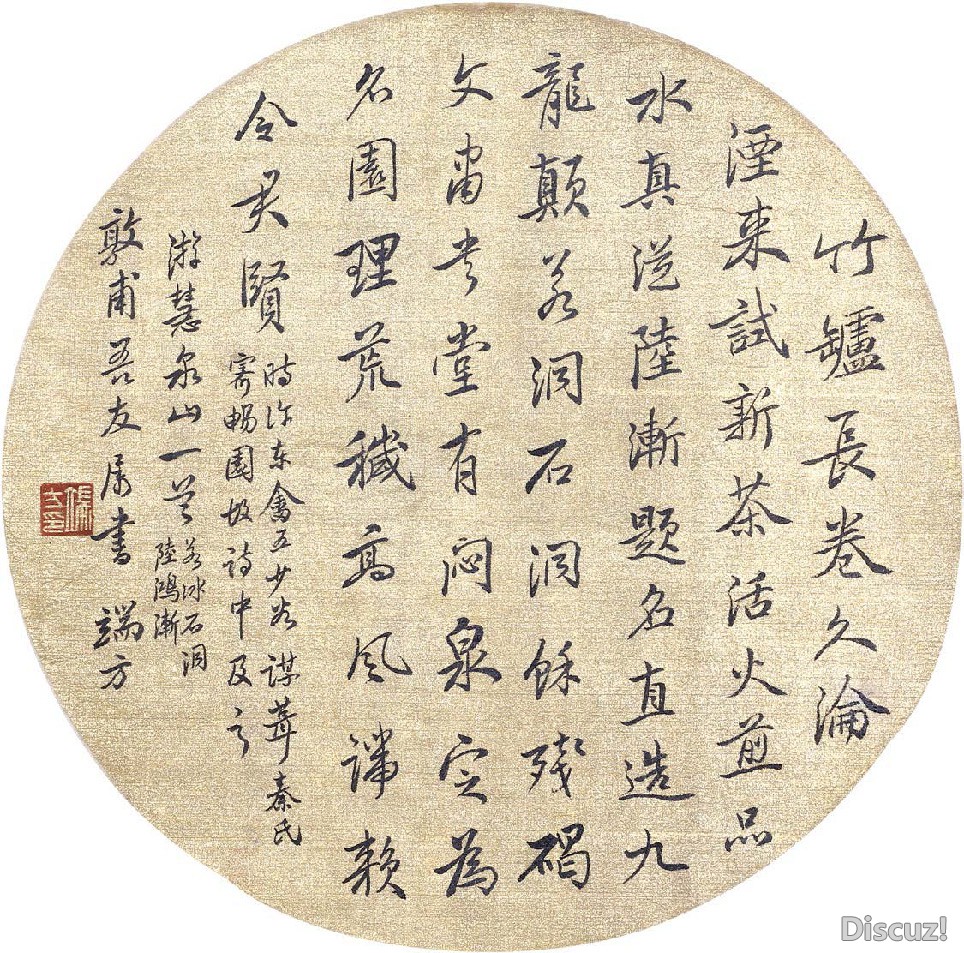 竹罏長卷久淪
湮来試新茶活火煎品
水真從陸漸題名直造九
龍顛若洞石洞餘殘碣
文堂有悶泉定為
名園理荒穢高風賴
令君賢
時許東五少谷謀葺秦氏
寄暢園故詩中及之
游慧泉山一首
若冰石洞
陸鴻漸
敦甫吾友属書 端方
Discuz!